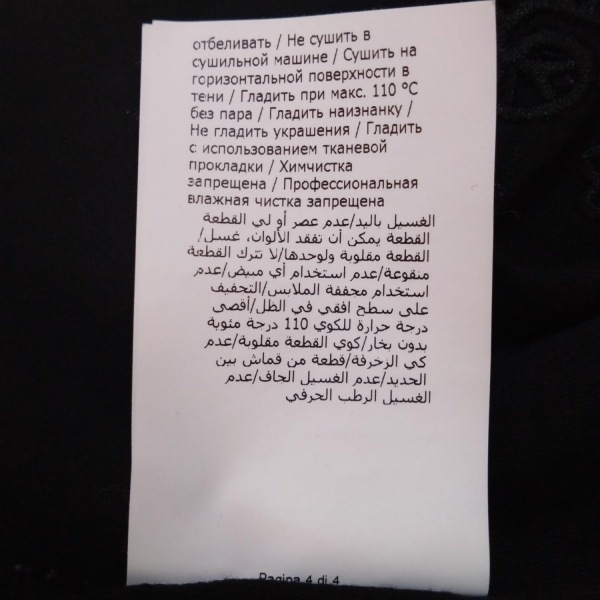 отбеливать / Не сушить в
сушильной машине / Сушить на
горизонтальной поверхности в
тени / Гладить при макс. 110 °C
без пара / Гладить наизнанку /
Не гладить украшения / Гладить
с использованием тканевой
прокладки / Химчистка
запрещена / Профессиональная
влажная чистка запрещена
الغسيل باليد/عدم عصر أو لي القطعة
القطعة يمكن أن تفقد الألوان، غسل/
القطعة مقلوبة ولوحدها/لا تترك القطعة
منقوعة/عدم استخدام أي مبيض/عدم
استخدام مجففة الملابس/التجفيف
على سطح افقي في الظل/أقصى
درجة حرارة للكوي 110 درجة مئوية
بدون بخار/كوي القطعة مقلوبة/عدم
كي الزخرفة/قطعة من قماش بين
الحديد/عدم الغسيل الجاف/عدم
الغسيل الرطب الحرفي
Pagina 4 di 4